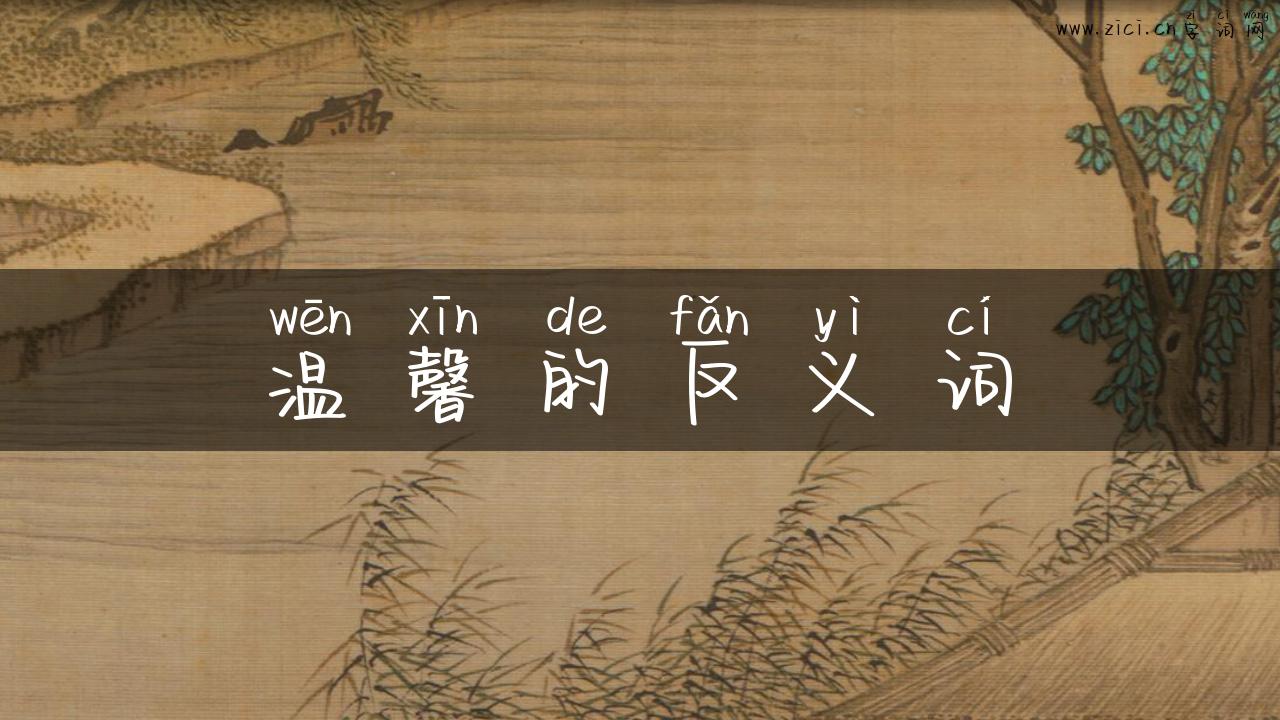 zì cí wǎng
www.zici.cn字词网
wēn xīn de fǎn yì cí
温馨的反义词